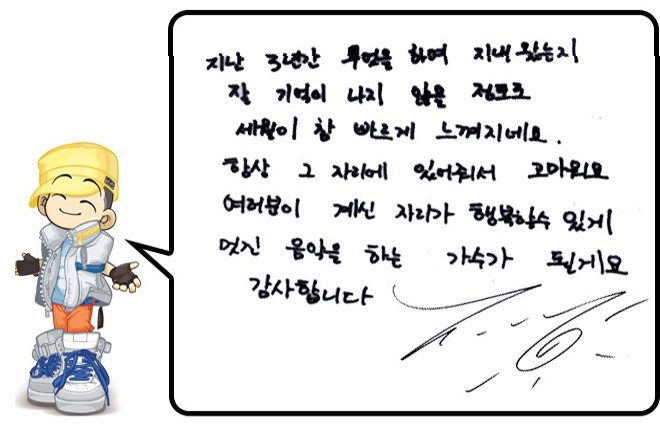 지난 3년간 무엇을 하며 지내 왔는지
잘 기억이 나지 않을 정도로
세월이 참 빠르게 느껴지네요.
항상 그 자리에 있어줘서 고마워요
여러분이 계신 자리가 행복할수 있게
멋진 음악을 하는 가수가 될게요
감사합니다